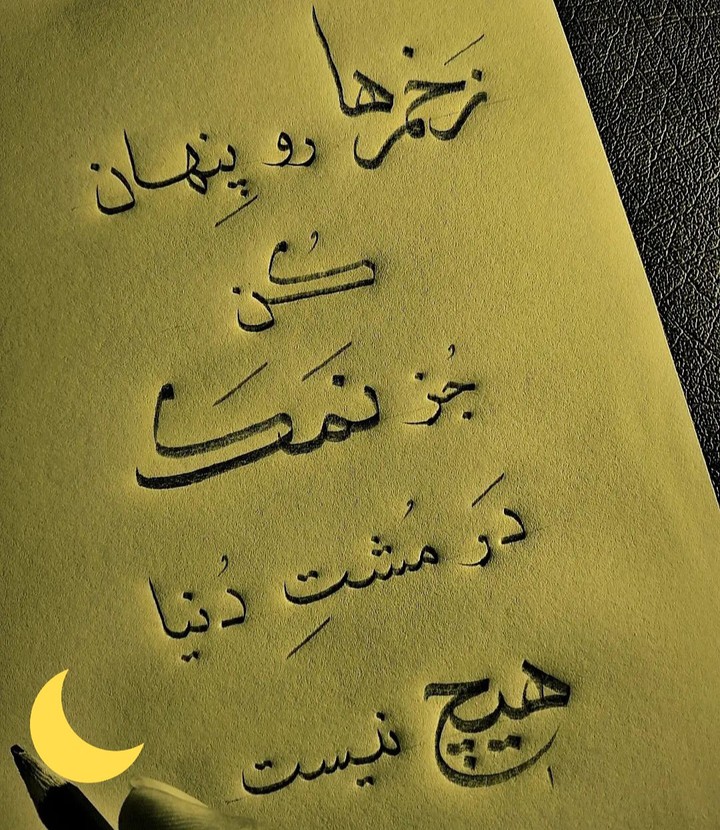 زخم‌ها رو پِنهان
کُن
جُز نَمَک
دَر مُشتِ دُنیا
هیچ نیست